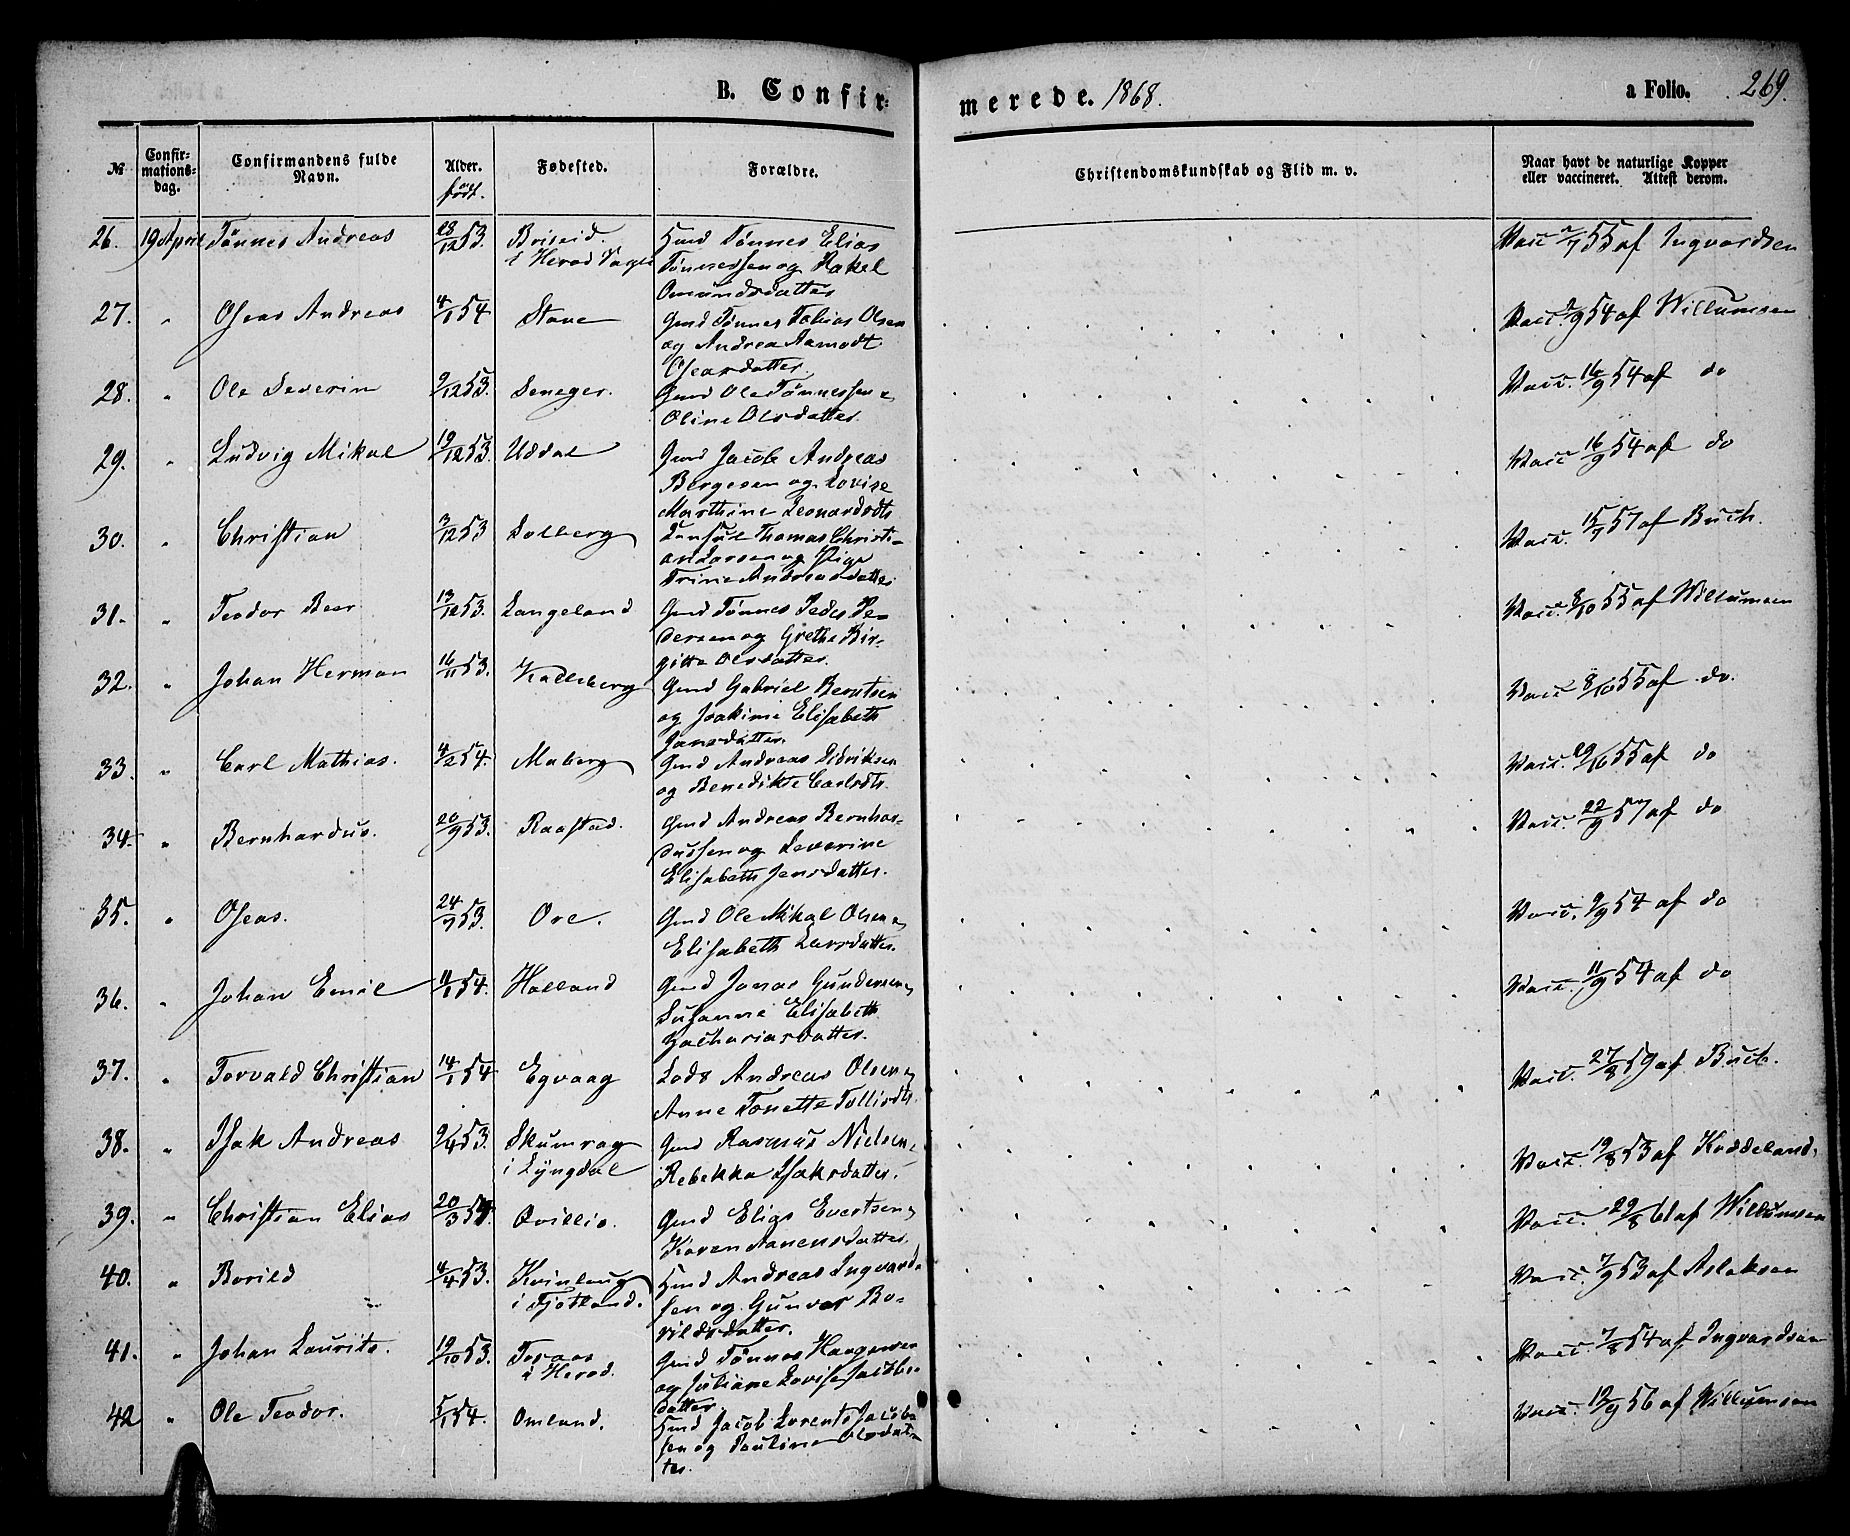 B. Confirmerede. 1868. a Folio. 269.
№ Confirmationsdag. Confirmandens fulde Navn. Alder. Fødested. Forældre. Christendomskundskab og Flid m. v. Naar havt de naturlige Kopper eller vaccineret. Attest derom.
født
26. 19 April Tønnes Andreas 28/12 53. Briseid Hmd Tønnes Elias Vacc 2/7 55 af Ingvardsen
i Herad Tønnessen og Rakel
Omundsdatter
27. " Oseas Andreas 4/1 54 Stave Gmd Tønnes Tobias Olsen Vacc. 9/9 54 af Willumsen
og Andrea Aamodt
Oseasdatter.
28. " Ole Severin 9/12 53. Seneger. Gmd Ole Tønnessen & Vacc. 16/9 54 af do
Oline Olsdatter.
29. " Ludvig Mikal 19/12 53. Uddal Gmd Jacob Andreas Vacc 16/9 54 af do
Bergesen og Lovise
Marthine Leonardsdtr
30. " Christian 3/12 53 Solberg Consul Thomas Christi- Vacc. 15/7 57 af Buch.
an Larsen og Pige
Trine Andreasdatter
31. " Teodor Beer 13/12 53. Langeland Gmd Tønnes Peder Pe- Vacc. 8/10 55 af Willumsen
dersen og Grethe Bir-
gitte Olsdatter.
32. " Johan Herman 16/11 53. Kalleberg Gmd Gabriel Berntsen Vacc 8/10 55 af do.
og Joakime Elisabeth
Jansdatter.
33. " Carl Mathias. 4/2 54. Maberg Gmd Andreas Didriksen Vacc. 55 af do
og Benedikte Carlsdtr.
34. " Bernhardus. 20/9 53. Raastad. Gmd Andreas Bernhar- Vacc. 22/9 57 af do
dussen og Severine
Elisabeth Jensdatter.
35. " Oseas. 24/7 53. Ore. Gmd Ole Mikal Olsen & Vacc. 9/9 54 af do
Elisabeth Larsdatter.
36. " Johan Emil 11/1 54. Holland Gmd Jonas Gundersen & Vacc. 11/9 54 af do
Susanne Elisabeth
Zachariasdatter.
37. " Torvald Christian 14/1 54 Egvaag Lods Andreas Olsen & Vacc. 27/8 59 af Buch.
Anne Tonette Tollisdtr.
38. " Isak Andreas 9/4 53. Skumrag Gmd Rasmus Nielsen & Vacc. 19/8 53 af Koddeland.
i Lyngdal Rebekka Isaksdatter.
39. " Christian Elias 20/3 54. Qvillio. Gmd Elias Evertsen & Vacc. 29/8 61 af Willumsen
Karen Aanensdatter.
40. " Borild 4/4 53. Kvinlaug Hmd Andreas Ingvard- Vacc. 7/9 53 af Aslaksen
i Fjotland. sen og Gunvor Bo-
rildsdatter.
41. " Johan Laurits. 19/10 53. Toraas Gmd Tønnes Haagensen Vacc. 7/8 54 af Ingvardsen
i Herad. og Juliane Lovise Jacobs-
datter.
42 " Ole Teodor. 5/1 54. Omland. Hmd Jacob Lorents Jacob- Vacc. 19/9 56 af Willumsen
sen og Pauline Olsdat-
ter.